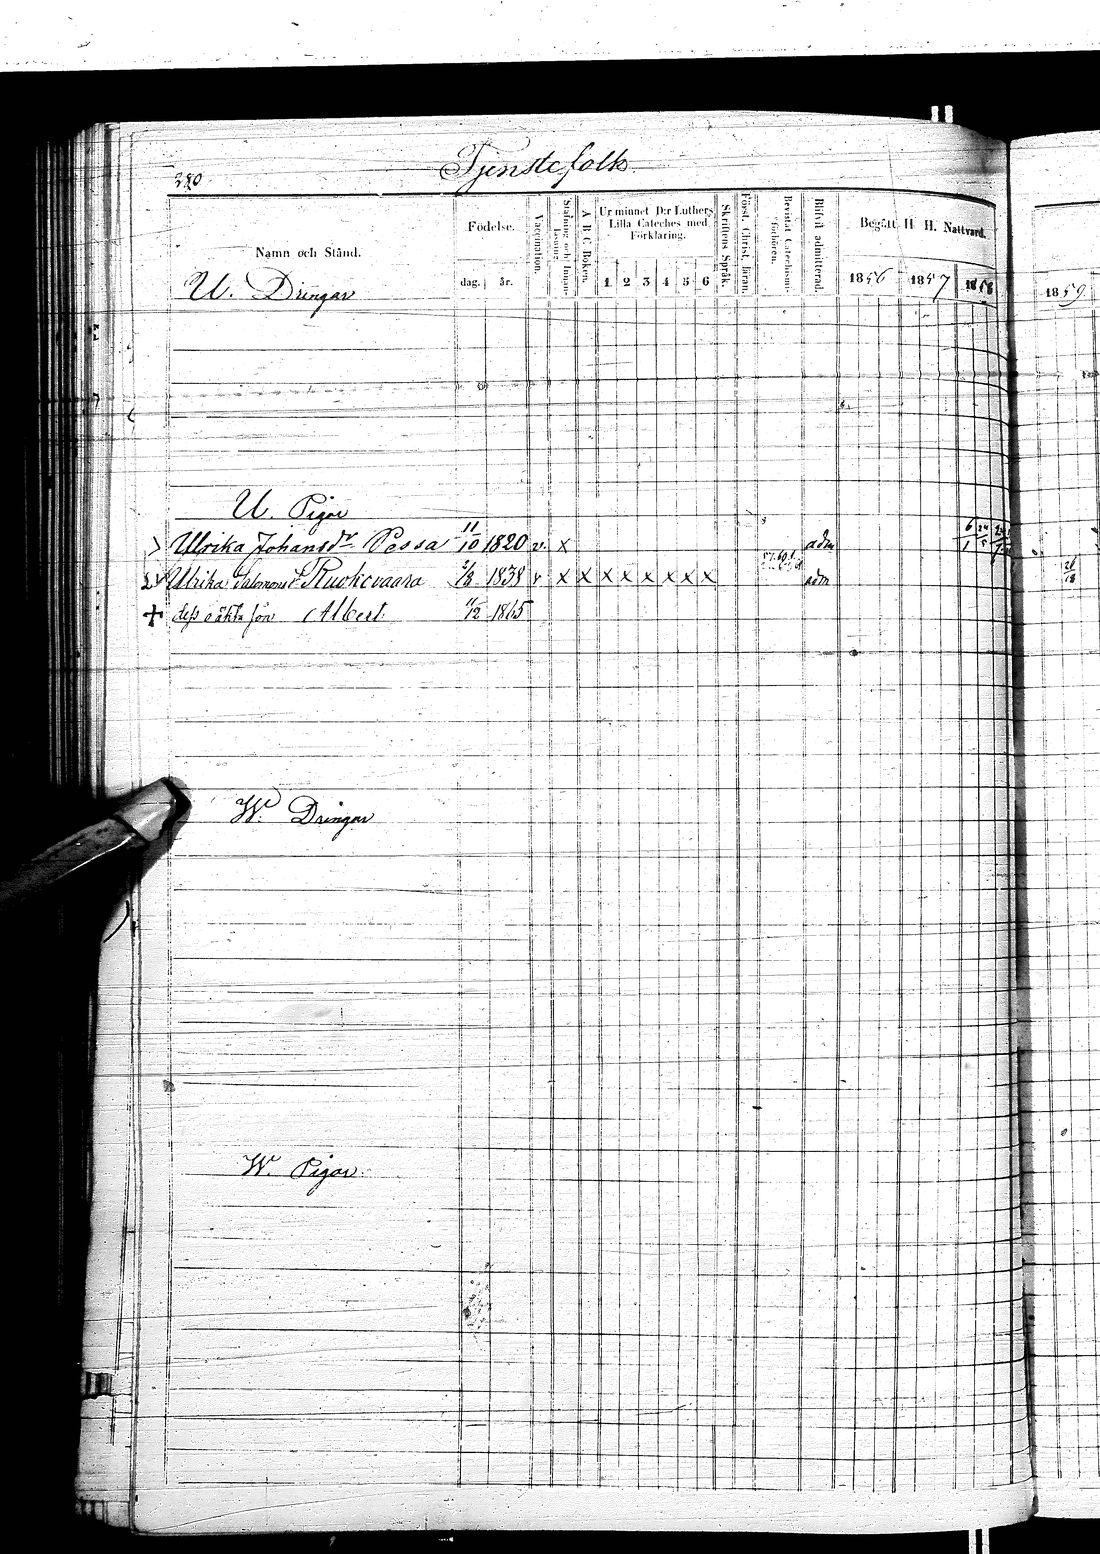 280
Tjenstefolk
Namn och Stånd.
Födelse.
dag. år.
Vaccination.
Stafning och Innanläsning
A B C Boken.
Ur minnet D:r Luthers Lilla Cateches med Förklaring.
1 2 3 4 5 6
Skriftens Språk.
Bevistat Catechismiförhören.
Blifvit admitterad.
Begått H. H. Nattvard.
1856 1857 1858
1859
U. Drängar
U. Pigor
Ulrika Johansdr Pessa 11/10 1820 v. x adm 6/1
Ulrika Salomonsdr Ruokovaara 2/8 1838 v x x x x x x x x adm
dess oäkta son Albert 11/12 1865
W. Drängar
W. Pigor